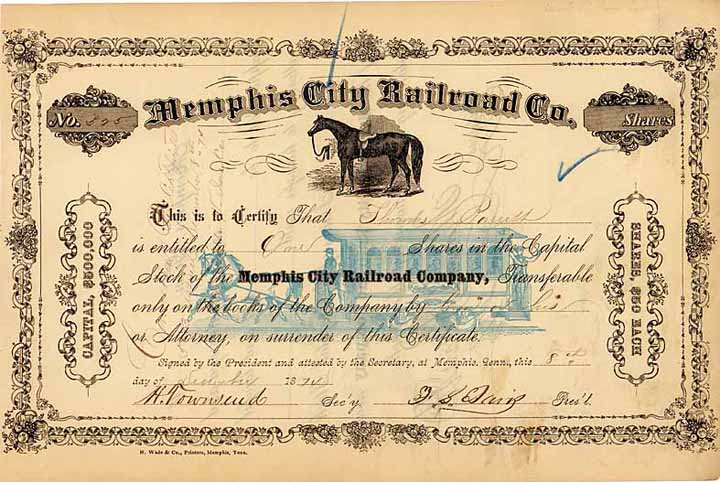 Memphis City Railroad Co.
No. 595
Shares
This is to Certify That
is entitled to Shares in the Capital
Stock of the Memphis City Railroad Company, Transferable
only on the books of the Company by his
or Attorney, on surrender of this Certificate.
Signed by the President and attested by the Secretary, at Memphis, Tenn., this 8th
day of 1874
Townsend Sec'y. Pres't.
CAPITAL, $500,000
SHARES, $50 EACH
H. Wade & Co., Printers, Memphis, Tenn.